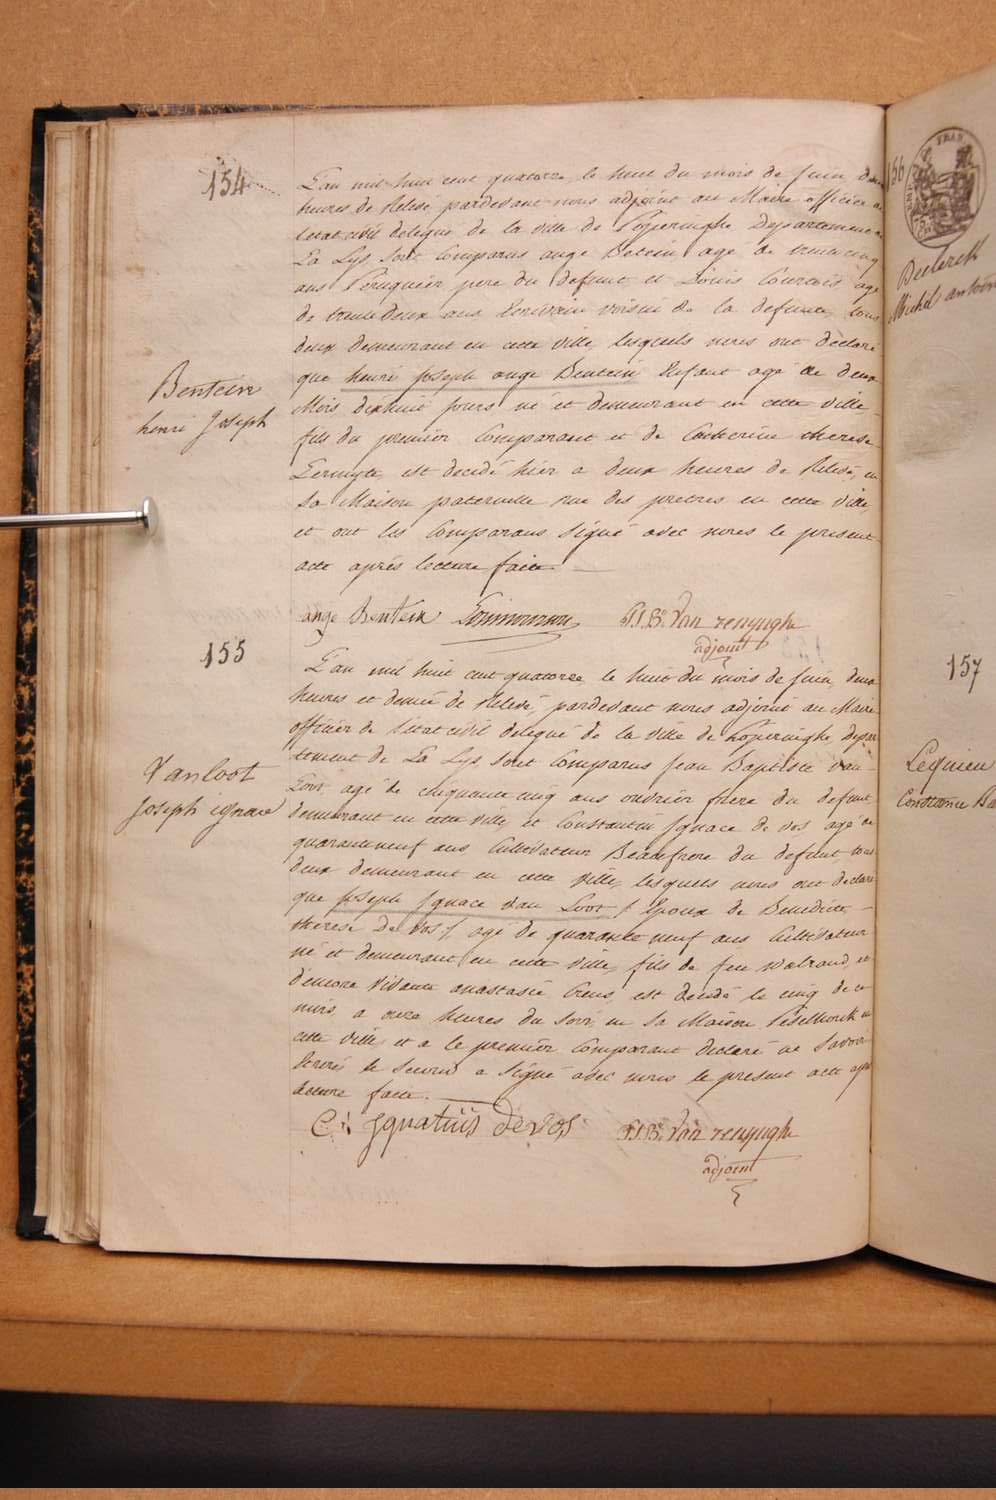 154
L'an mil huit cent quatorze, le huit du mois de Juin, deux
heures de Relevé, pardevant nous adjoint au Maire officier de
letat civil delegué de la ville de Poperinghe Departement de
La Lys, sont Comparus ange Bentein agé de trente cinq
ans Peruquier pere du defunt et Louis Courtois agé
de trente deux ans Ecrivain voisin de la defunte, tous
deux demeurant en cette ville, lesquels nous ont declaré
que henri Joseph ange Bentein Enfant agé de deux
Mois dixhuit jours né et demeurant en cette ville
fils du premier Comparant et de Catherine therese
est decedé hier a deux heures de Relevé, en
sa Maison paternelle rue des pretres en cette ville
et ont les Comparans signé avec nous le present
acte aprés lecture faite.
Bentein
henri Joseph
ange Bentein P.J.B. Van renynghe
adjoint
155
L'an mil huit cent quatorze, le huit du mois de Juin, deux
heures et demie de Relevé, pardevant nous adjoint au Maire
officier de l'état civil delegué de la ville de Poperinghe, Depar
tement de La Lys, sont Comparus Jean Baptiste van
Loot, agé de cinquante cinq ans ouvrier frere du defunt
demeurant en cette ville, et Constantin Ignace de vos agé de
quaranteneuf ans Cultivateur Beaufrere du defunt, tous
deux demeurant en cette ville, lesquels nous ont declaré
que Joseph Ignace van Loot / Epoux de Benedicte
therese De Vos /, agé de quarante neuf ans Cultivateur
né et demeurant en cette ville, fils de feu walraud, et
d'encore vivante anastasie est decedé le cinq de ce
mois, a onze heures du soir, en sa Maison en
cette ville, et a le premier Comparant declaré ne savoir
Ecrire le second a signé avec nous le present acte après
lecture faite.
Vanloot
Joseph ignace
C: Ignatiüs devos P.J.B. Van renynghe
adjoint
156
FRAN
Declerck
Michel antoine
157
Leguieu